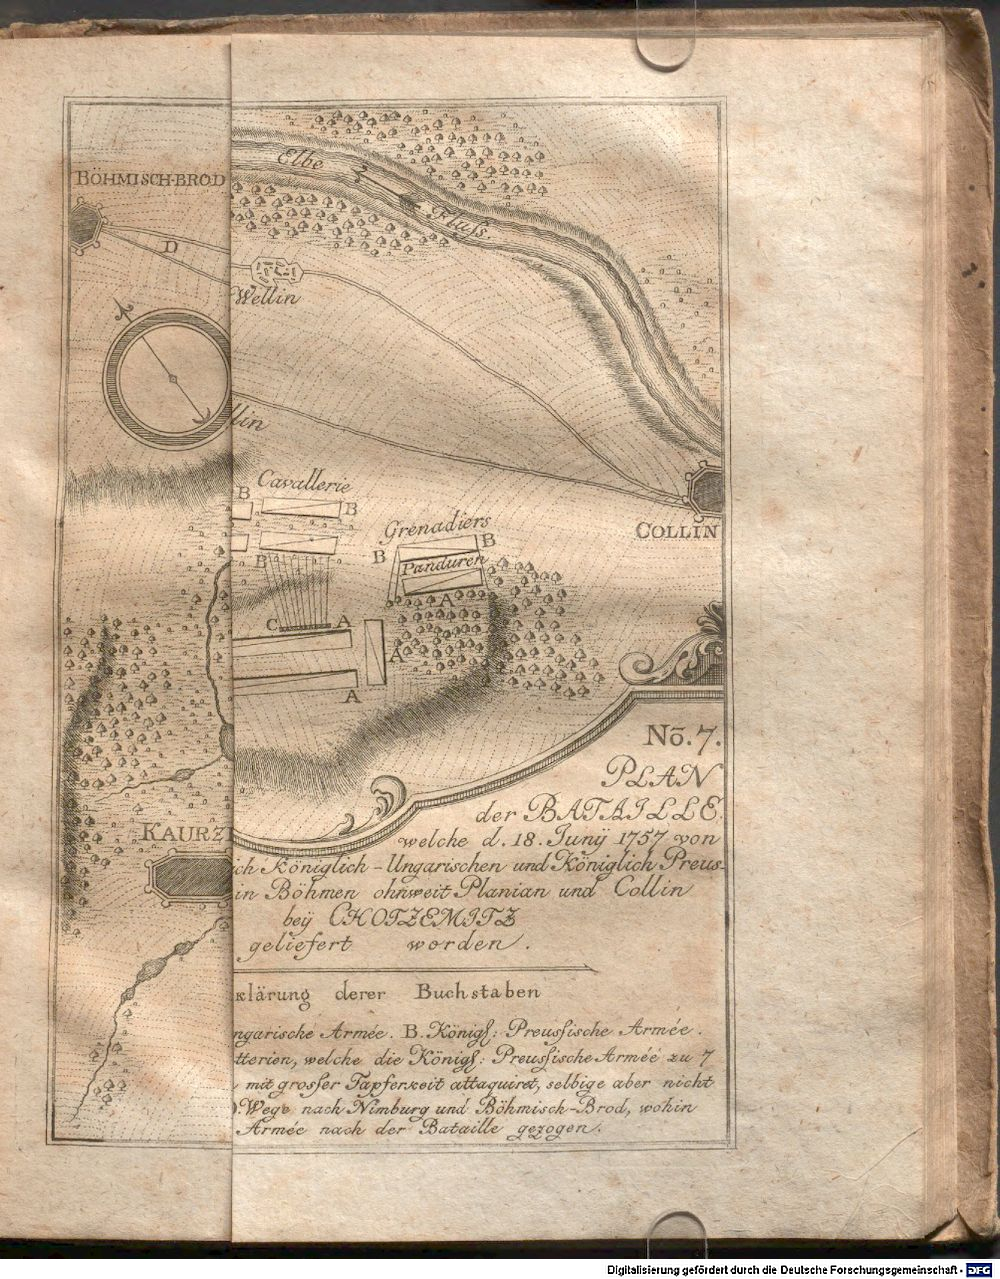 Elbe Fluſs
BÖHMISCH-BROD
D
Wellin
llin
Cavallerie
B
B
Grenadiers
B
B
B
Panduren
A
C
A
A
A
COLLIN
KAURZI
Nõ. 7.
PLAN
der BATAILLE
welche d. 18. Junij 1757 von
ch Königlich-Ungarischen und Königlich Preus-
in Böhmen ohnweit Planian und Collin
beÿ CHOTZEMITZ
geliefert worden.
klärung derer Buchstaben
ngarische Armée. B. Königl: Preuſsische Armée.
tterien, welche die Königl: Preuſsische Armée zu 7
mit groſser Tapferkeit attaquiret, selbige aber nicht
D Wege nach Nimburg und Böhmisch-Brod, wohin
Armée nach der Bataille gezogen.
Digitalisierung gefördert durch die Deutsche Forschungsgemeinschaft - DFG